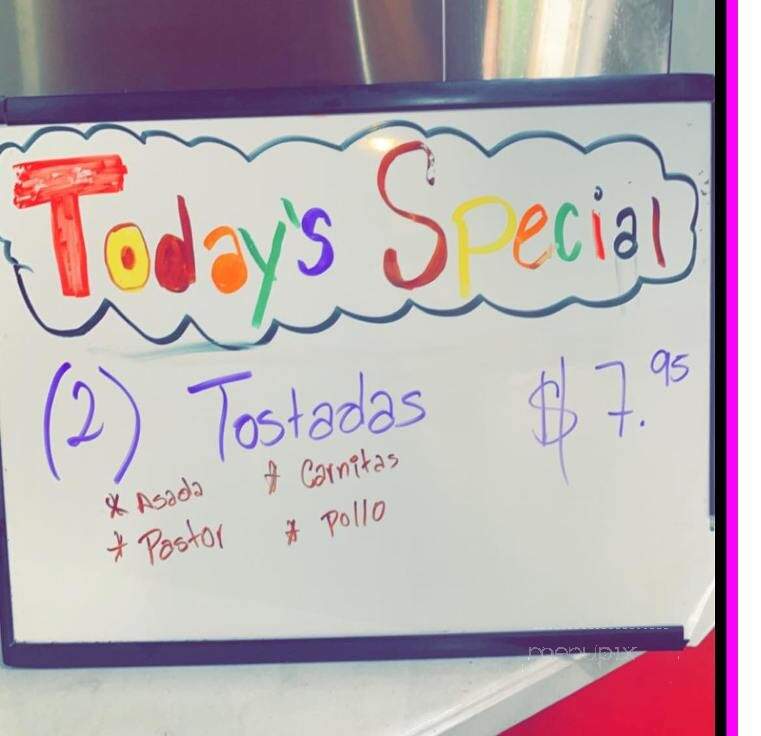 Today's Special
(2) Tostadas $7.95
* Asada * Carnitas
* Pastor * Pollo
menupix